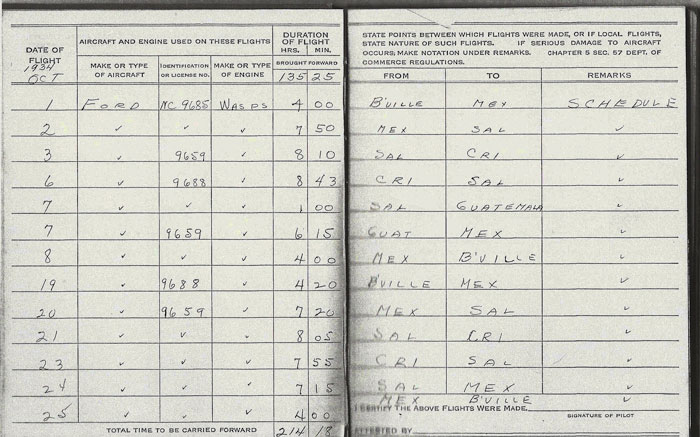 DATE OF FLIGHT
AIRCRAFT AND ENGINE USED ON THESE FLIGHTS
DURATION OF FLIGHT
MAKE OR TYPE OF AIRCRAFT
IDENTIFICATION OR LICENSE NO.
MAKE OR TYPE OF ENGINE
HRS. MIN.
BROUGHT FORWARD
1934
OCT 135 25
STATE POINTS BETWEEN WHICH FLIGHTS WERE MADE, OR IF LOCAL FLIGHTS,
STATE NATURE OF SUCH FLIGHTS. IF SERIOUS DAMAGE TO AIRCRAFT
OCCURS, MAKE NOTATION UNDER REMARKS. CHAPTER 5 SEC. 57 DEPT. OF
COMMERCE REGULATIONS.
FROM TO REMARKS
1 FORD NC 9685 WASPS 4 00 B'VILLE MEX SCHEDULE
2 ✓ ✓ ✓ 7 50 MEX SAL ✓
3 ✓ 9659 ✓ 8 10 SAL CRI ✓
6 ✓ 9688 ✓ 8 43 CRI SAL ✓
7 ✓ ✓ ✓ 1 00 SAL GUATEMALA ✓
7 ✓ 9659 ✓ 6 15 GUAT MEX ✓
8 ✓ ✓ ✓ 4 00 MEX B'VILLE ✓
19 ✓ 9688 ✓ 4 20 B'VILLE MEX ✓
20 ✓ 9659 ✓ 7 20 MEX SAL ✓
21 ✓ ✓ ✓ 8 05 SAL CRI ✓
23 ✓ ✓ ✓ 7 55 CRI SAL ✓
24 ✓ ✓ ✓ 7 15 SAL MEX ✓
25 ✓ ✓ ✓ 4 00 MEX B'VILLE ✓
TOTAL TIME TO BE CARRIED FORWARD 214 18
I CERTIFY THE ABOVE FLIGHTS WERE MADE.
SIGNATURE OF PILOT
ATTESTED BY